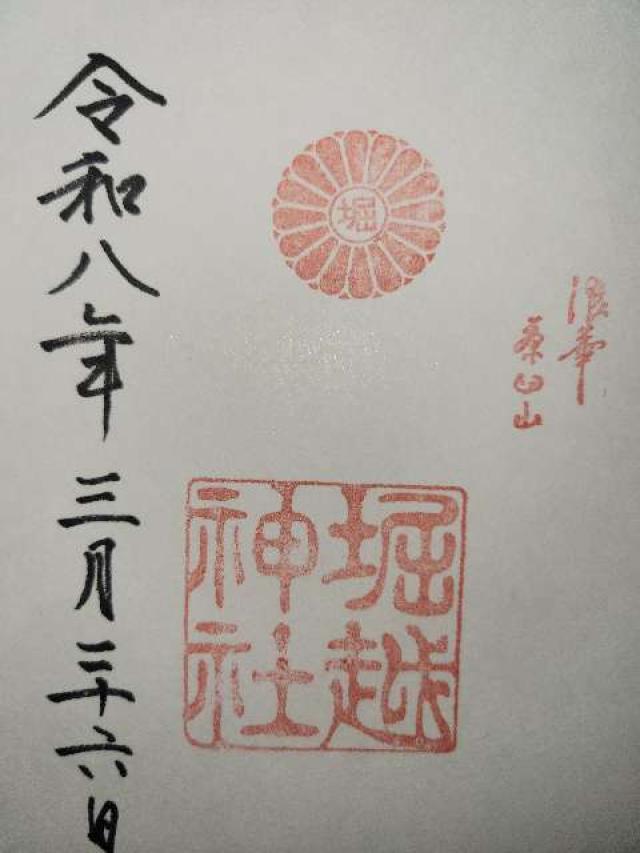 浪華
茶臼山
堀
堀越
神社
令和八年三月二十六日